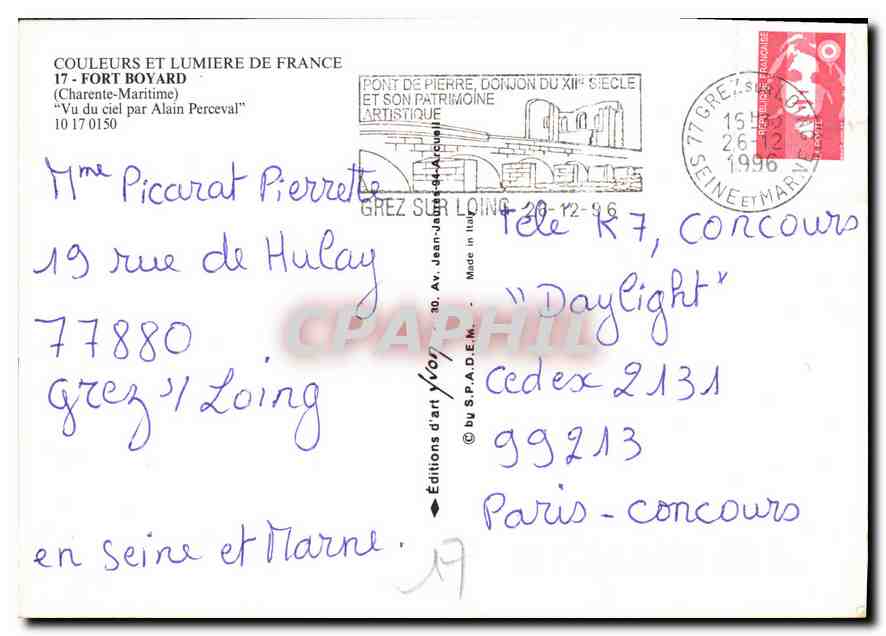 COULEURS ET LUMIERE DE FRANCE
17 - FORT BOYARD
(Charente-Maritime)
"Vu du ciel par Alain Perceval"
10 17 0150
PONT DE PIERRE, DONJON DU XIIe SIECLE
ET SON PATRIMOINE
ARTISTIQUE
GREZ SUR LOING 26-12-96
77 GREZ S/
26-12
1996
SEINE ET MARNE
REPUBLIQUE FRANÇAISE
LA POSTE
Mme Picarat Pierrette
19 rue de Hulay
77880
Grez s/ Loing
en Seine et Marne.
17
Editions d'art Yvon - 30, Av. Jean-Jaurès-94-Arcueil
© by S.P.A.D.E.M. - Made in Italy
Télé K7, concours
"Daylight"
Cedex 2131
99213
Paris - concours
CPAPHIL